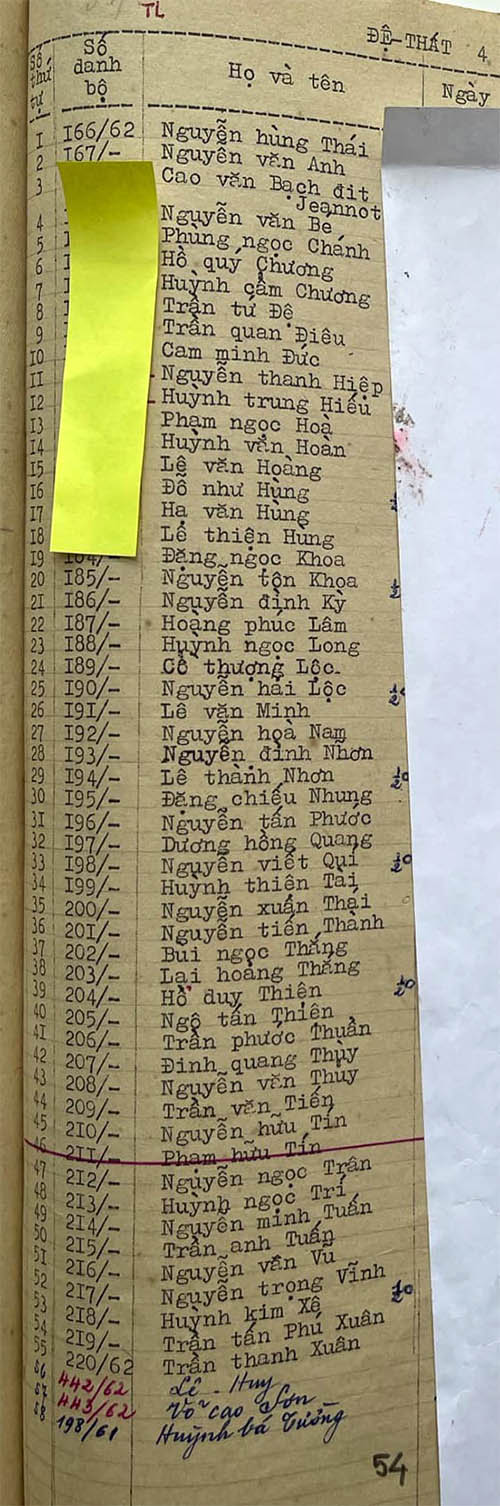 TL
ĐỆ-THẤT 4
Số thứ tự Số danh bộ Họ và tên Ngày
1 166/62 Nguyễn hùng Thái
2 167/- Nguyễn văn Anh
3 Cao văn Bạch đit
Jeannot
4 Nguyễn văn Bé
5 Phùng ngọc Chánh
6 Hồ quý Chương
7 Huỳnh cẩm Chương
8 Trần tứ Đê
9 Trần quan Điêu
10 Cam minh Đức
11 Nguyễn thanh Hiệp
12 Huỳnh trung Hiếu
13 Phạm ngọc Hoà
14 Huỳnh văn Hoàn
15 Lê văn Hoàng
16 Đỗ như Hùng
17 Hạ văn Hùng
18 Lê thiện Hùng
19 184/- Đặng ngọc Khoa
20 185/- Nguyễn tôn Khoa
21 186/- Nguyễn đình Kỳ
22 187/- Hoàng phúc Lâm
23 188/- Huỳnh ngọc Long
24 189/- Cổ thượng Lộc
25 190/- Nguyễn hải Lộc
26 191/- Lê văn Minh
27 192/- Nguyễn hoà Nam
28 193/- Nguyễn đình Nhơn
29 194/- Lê thành Nhơn
30 195/- Đặng chiếu Nhung
31 196/- Nguyễn tấn Phước
32 197/- Dương hồng Quang
33 198/- Nguyễn viết Quí
34 199/- Huỳnh thiện Tài
35 200/- Nguyễn xuân Thái
36 201/- Nguyễn tiến Thành
37 202/- Bui ngọc Thắng
38 203/- Lại hoàng Thắng
39 204/- Hồ duy Thiện
40 205/- Ngô tấn Thiện
41 206/- Trần phước Thuần
42 207/- Đinh quang Thùy
43 208/- Nguyễn văn Thủy
44 209/- Trần văn Tiến
45 210/- Nguyễn hữu Tín
46 211/- Phạm hữu Tín
47 212/- Nguyễn ngọc Trân
48 213/- Huỳnh ngọc Trí
49 214/- Nguyễn minh Tuấn
50 215/- Trần anh Tuấn
51 216/- Nguyễn văn Vũ
52 217/- Nguyễn trọng Vĩnh
53 218/- Huỳnh kim Xê
54 219/- Trần tấn Phú Xuân
55 220/62 Trần thanh Xuân
56 442/62 Lê - Huy
57 443/62 Võ cao Sơn
58 198/61 Huỳnh bá Tường
54